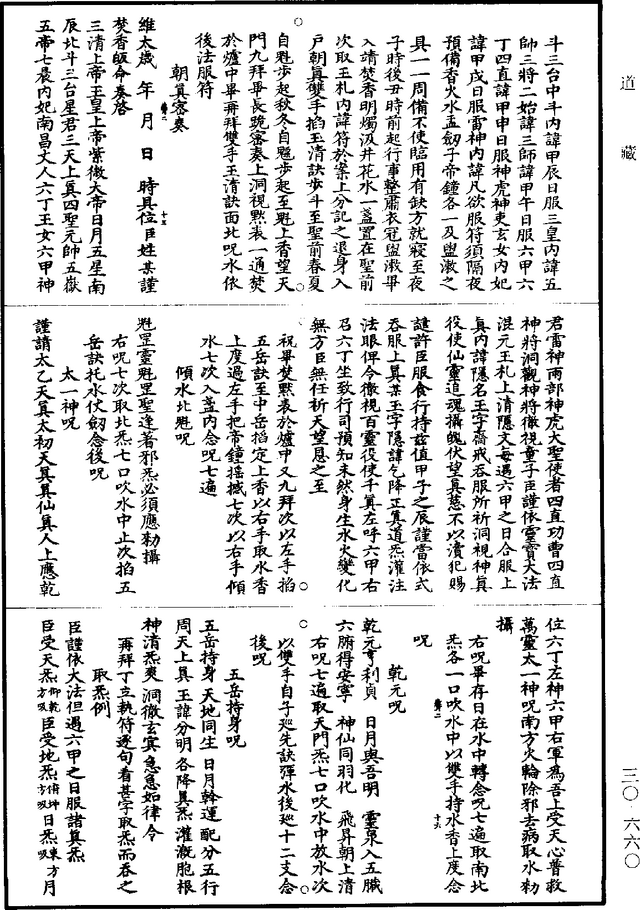 道藏
斗三台中斗內諱甲辰日服三皇內諱五
帥三將二始諱三師諱甲午日服六甲六
丁四直諱甲申日服神虎神吏玄女內妃
諱甲戌日服雷神內諱凡欲服符須隔夜
預備香火水盂劒子帝鐘各一及盥漱之
具一一周備不使臨用有缺方就寢至夜
子時後丑時前起行事整肅衣冠盥漱畢
入靖焚香明燭汲井花水一盞置在聖前
次取玉札內諱符於案上分記之退身入
戶朝真雙手掐玉清訣步斗至聖前春夏
自魁步起秋冬自魒步起至魁上香望天
門九拜畢長跪密奏上洞視默表一通焚
於爐中畢再拜雙手玉清訣面北呪水依
後法服符
朝真密奏
維太歲　年　月　日　時具位臣姓某謹
焚香皈命奏啓
三清上帝玉皇上帝紫微大帝日月五星南
辰北斗三台星君三天上真四聖元帥五嶽
五帝七晨內妃南昌丈人六丁玉女六甲神
君雷神兩部神虎大聖使者四直功曹四直
神將洞觀神將徹視童子臣謹依靈寶大法
混元玉札上清隱文每遇六甲之日合服上
真內諱隱名玉字齋戒吞服所祈洞視神真
役使仙靈追魂攝魄伏望真慈不以瀆犯賜
譴許臣服食行持兹值甲子之辰謹當依式
吞服上真某玉字隱諱乞降正真道炁灌注
法眼俾令徹視百靈役使千真左呼六甲右
召六丁坐致行司預知未然身生水火變化
無方臣無任祈天望恩之至
祝畢焚默表於爐中又九拜次以左手掐
五岳訣至中岳掐定上香以右手取水香
上度過左手把帝鐘搖撼七次以右手傾
水七次入盞內念呪七遍
傾水北魁呪
魁罡靈魁罡聖逢著邪炁必須應勑攝
右呪七次取北炁七口吹水中止次掐五
岳訣托水仗劒念後呪
太一神呪
謹請太乙天真太初天真真仙真人上應乾
位六丁左神六甲右軍為吾上受天心普救
萬靈太一神呪南方火輪除邪去病取水勑
攝
右呪畢存日在水中轉念呪七遍取南北
炁各一口吹水中以雙手持水香上度念
呪
乾元呪
乾元亨利貞　日月與吾明　靈泉入五臟
六腑得安寧　神仙同羽化　飛昇朝上清
右呪七遍取天門炁七口吹水中放水次
以雙手自子巡先訣彈水後巡十二支念
後呪
五岳持身呪
五岳持身　天地同生　日月斡運　配分五行
周天上真　玉諱分明　各降真炁　灌溉胞根
神清炁爽　洞徹玄冥　急急如律令
再拜丁立執符逐句看甚字取炁而吞之
取炁例
臣謹依大法但遇六甲之日服諸真炁
臣受天炁仰乾方吸臣受地炁俯坤方吸日炁東方吸月
三〇·六六〇